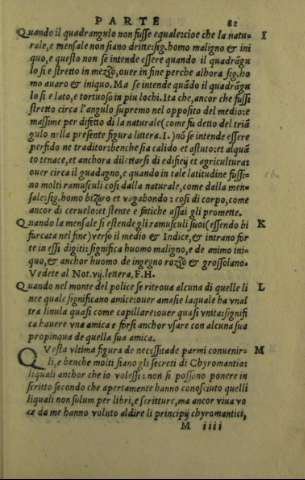 PARTE 82
Quando il quadrangulo non fusse equale: cioe che la natu- I
rale, e mensale non siano dritte: sig. homo maligno & ini
quo, e questo non se intende essere quando il quadrágu
lo si e stretto in mezzo, ouer in fine perche alhora sig. ho
mo auaro & iniquo. Ma se intende quádo il quadrágu
lo si e lato, e tortuoso in piu lochi. Ita che, ancor che fussi
stretto circa l'angulo supremo nel opposito del medio: e
massime per difetto di la naturale (come fu detto del triá
gulo nella presente figura littera. I.) nó se intende essere
perfido ne traditor: benche sia calido et astuto: et alquá
to tenace, et anchora dilettarsi di edificij et agricultura:
ouer circa il guadagno, e quando in tale latitudine fussi-
no molti ramusculi cosi dalla naturale, come dalla men-
sale: sig. homo bizaro et vagabondo: cosi di corpo, come
ancor di ceruelo: et stente & futiche assai gli promette.
Quando la mensale si estende gli ramusculi suoi (essendo bi K
furcata nel fine) verso il medio & Indice, & intrano for
te in essi digiti: significa huomo maligno, e de animo ini-
quo, & anchor huomo de ingegno rozzo & grossolano.
Vedete al Nor. vij. lettera, F. H.
Quando nel monte del police se ritroua alcuna di quelle li L
nee quale significano amice: ouer amasie laquale ha vnal
tra linula quasi come capillare: ouer quasi vnita: signifi
ca hauere vna amica e forsi anchor vsare con alcuna sua
propinqua de quella sua amica.
Questa vltima figura de necessita de parmi conuenir- M
li, e benche molti siano gli secreti di Chyromantia:
liquali anchor che io volessi: non si possono ponere in
scritto secondo che apertamente hanno conosciuto quelli
liquali non solum per libri, e scritture, ma ancor viua vo
ce da me hanno voluto aldire li principij chyromantici,
M iiii